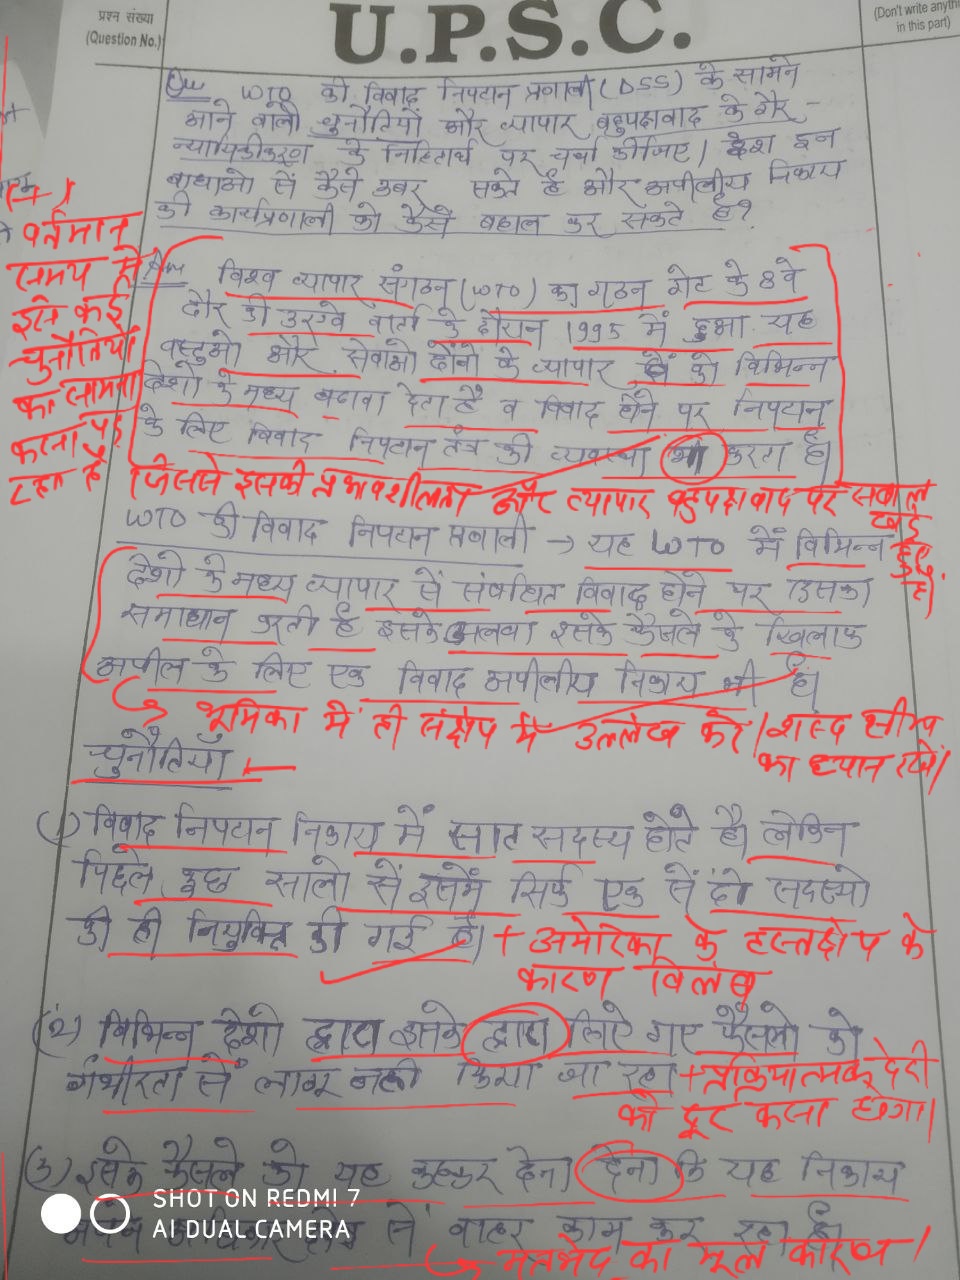 प्रश्न संख्या
(Question No.)
U.P.S.C.
(Don't write anyth
in this part)
Que WTO की विवाद निपटान प्रणाली (DSS) के सामने
आने वाली चुनौतियों और व्यापार बहुपक्षवाद के गैर -
न्यायिकीकरण के निहितार्थ पर चर्चा कीजिए। देश इन
बाधाओं से कैसे उबर सकते हैं और अपीलीय निकाय
की कार्यप्रणाली को कैसे बहाल कर सकते है?
वर्तमान
समय में
इसे कई
चुनौतियों
का सामना
करना पड़
रहा है
Ans विश्व व्यापार संगठन (WTO) का गठन गेट के 8वे
दौर की उरुग्वे वार्ता के दौरान 1995 में हुआ यह
वस्तुओ और सेवाओ दोनों के व्यापार को विभिन्न
देशो के मध्य बढावा देता है व विवाद होने पर निपटान
के लिए विवाद निपटान तंत्र की व्यवस्था भी करता है।
जिससे इसकी प्रभावशीलता और व्यापार बहुपक्षवाद पर सवाल
खड़े
हुए
है।
WTO की विवाद निपटान प्रणाली → यह WTO में विभिन्न
देशो के मध्य व्यापार से संबंधित विवाद होने पर उसका
समाधान करती है इसके अलवा इसके फैसले के खिलाफ
अपील के लिए एक विवाद अपीलीय निकाय भी है।
भूमिका में ही संक्षेप में उल्लेख करें। शब्द सीमा
का ध्यान रखें।
चुनौतियाँ
(1) विवाद निपटान निकाय में सात सदस्य होते है। लेकिन
पिछले कुछ सालो से इसमें सिर्फ एक से दो सदस्यो
की ही नियुक्ति की गई है। + अमेरिका के हस्तक्षेप के
कारण विलंब
(2) विभिन्न देशो द्वारा इसके द्वारा लिए गए फैसलो को
गंभीरता से लागू नही किया जा रहा + प्रक्रियात्मक देरी
को दूर करना होगा।
(3) इसके फैसले को यह कहकर देना देना कि यह निकाय
से बाहर काम कर रहा है।
मतभेद का मूल कारण।
SHOT ON REDMI 7
AI DUAL CAMERA